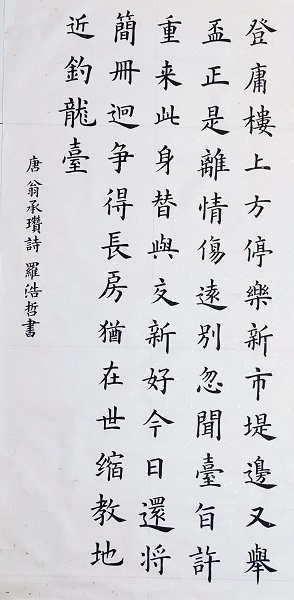 登庸樓上方停樂新市堤邊又舉
盃正是離情傷遠別忽聞臺旨許
重来此身替與交新好今日還将
簡冊迴争得長房猶在世缩教地
近釣龍臺
唐翁承瓚詩 羅浩哲書